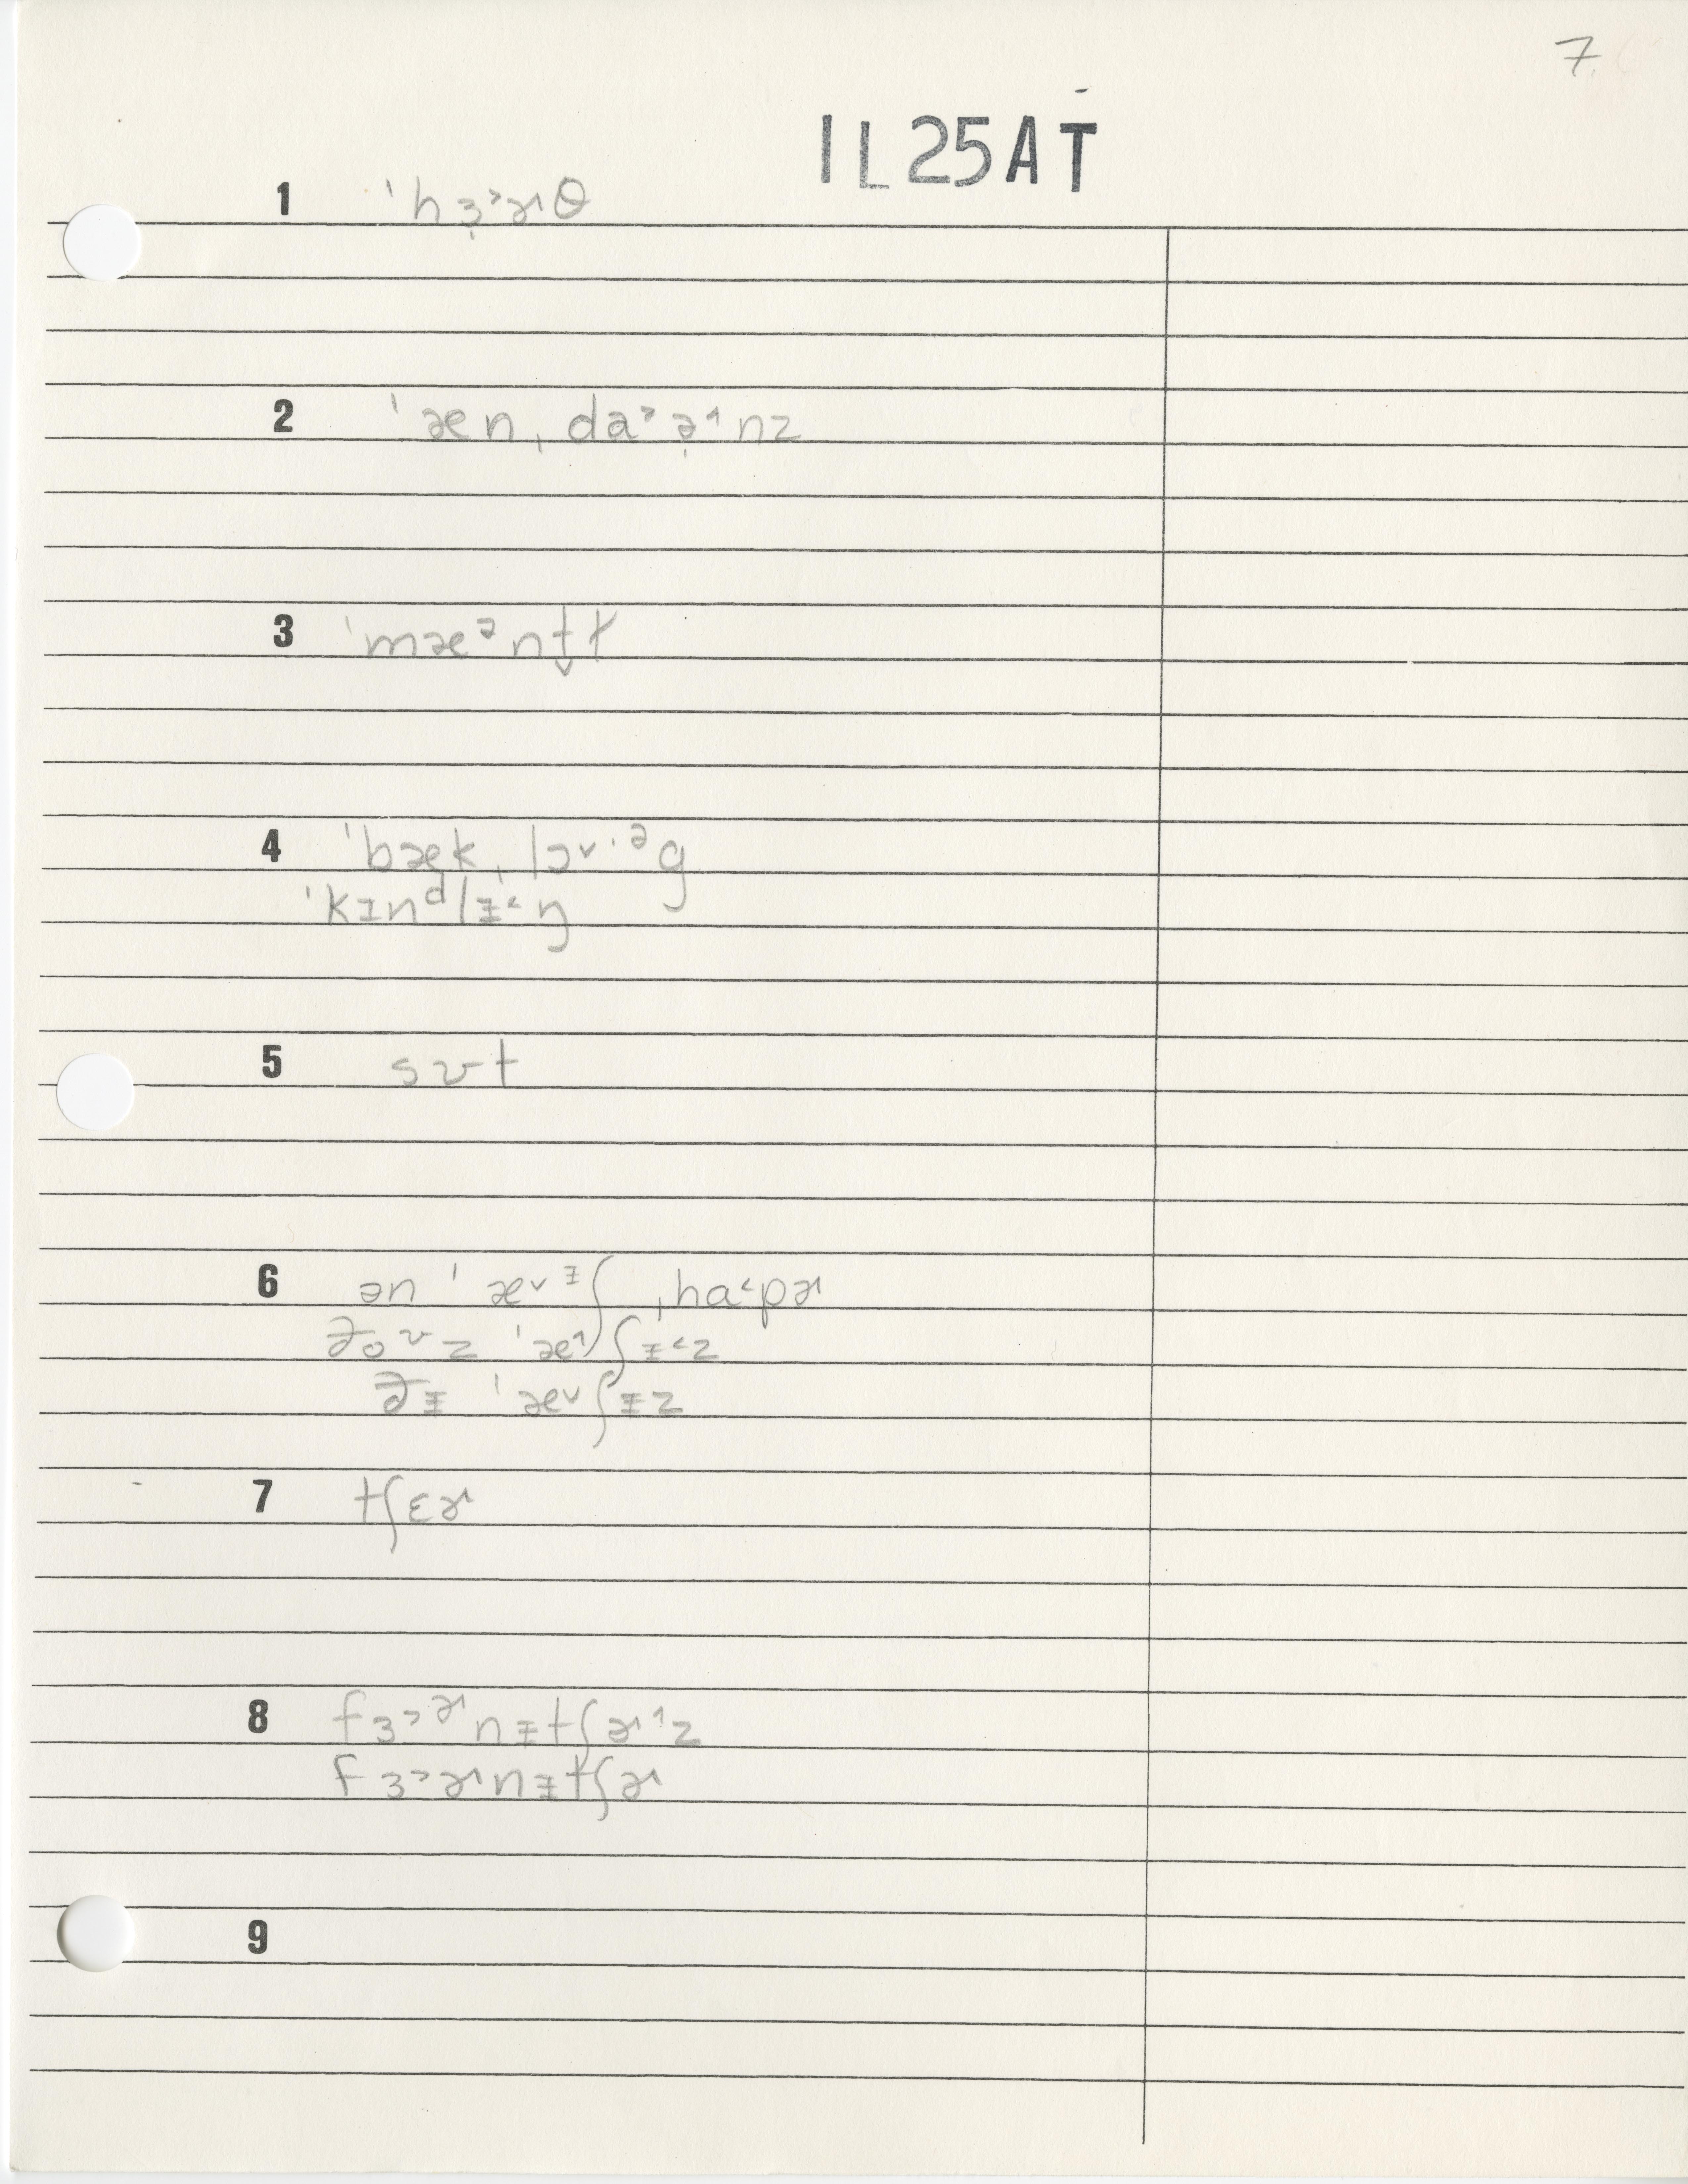 7.
1L25AT
1 ˈhɜ̣˃ɚθ
2 ˈæn ˌda˃ə̣˄nz
3 ˈmæᵊntɫ̬
4 ˈbæk ˌlɔ˅·ᵊg
ˈkɪnᵈlᵻ˂ŋ
5 sʊt
6 ən ˈæ˅ᵻʃ ˌha˂pɚ
ðoᶷz ˈæ˄ʃᵻ˂z
ðᵻ ˈæ˅ʃᵻz
7 tʃɛɚ
8 fɜ˃ɚnᵻtʃɚ˄z
fɜ˃ɚnᵻtʃɚ
9